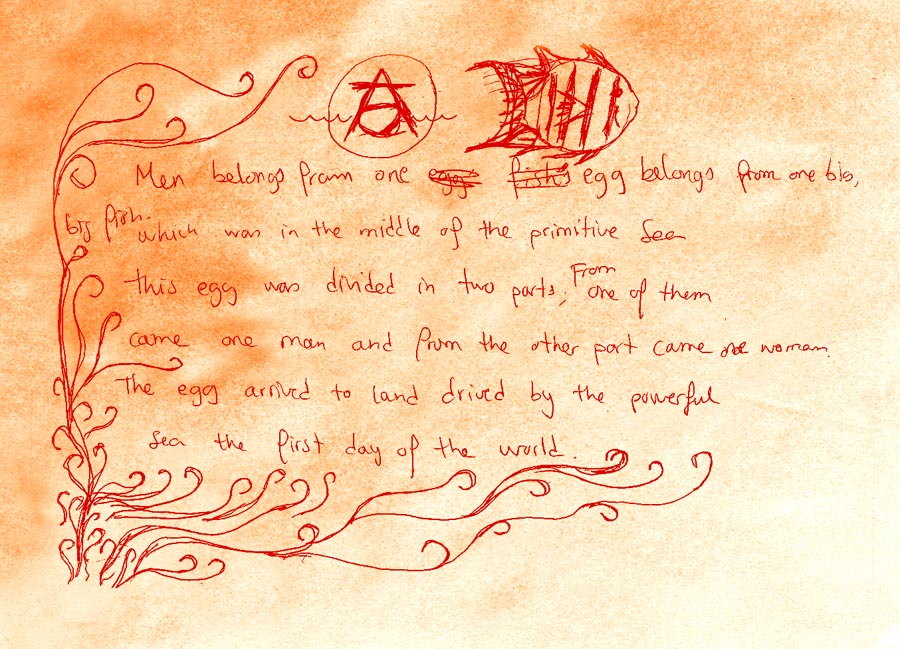 Men belongs from one egg fish's egg belongs from one big,
big fish. which was in the middle of the primitive Sea
this egg was divided in two parts, From one of them
came one man and from the other part came one woman.
The egg arrived to land drived by the powerful
Sea the first day of the world.